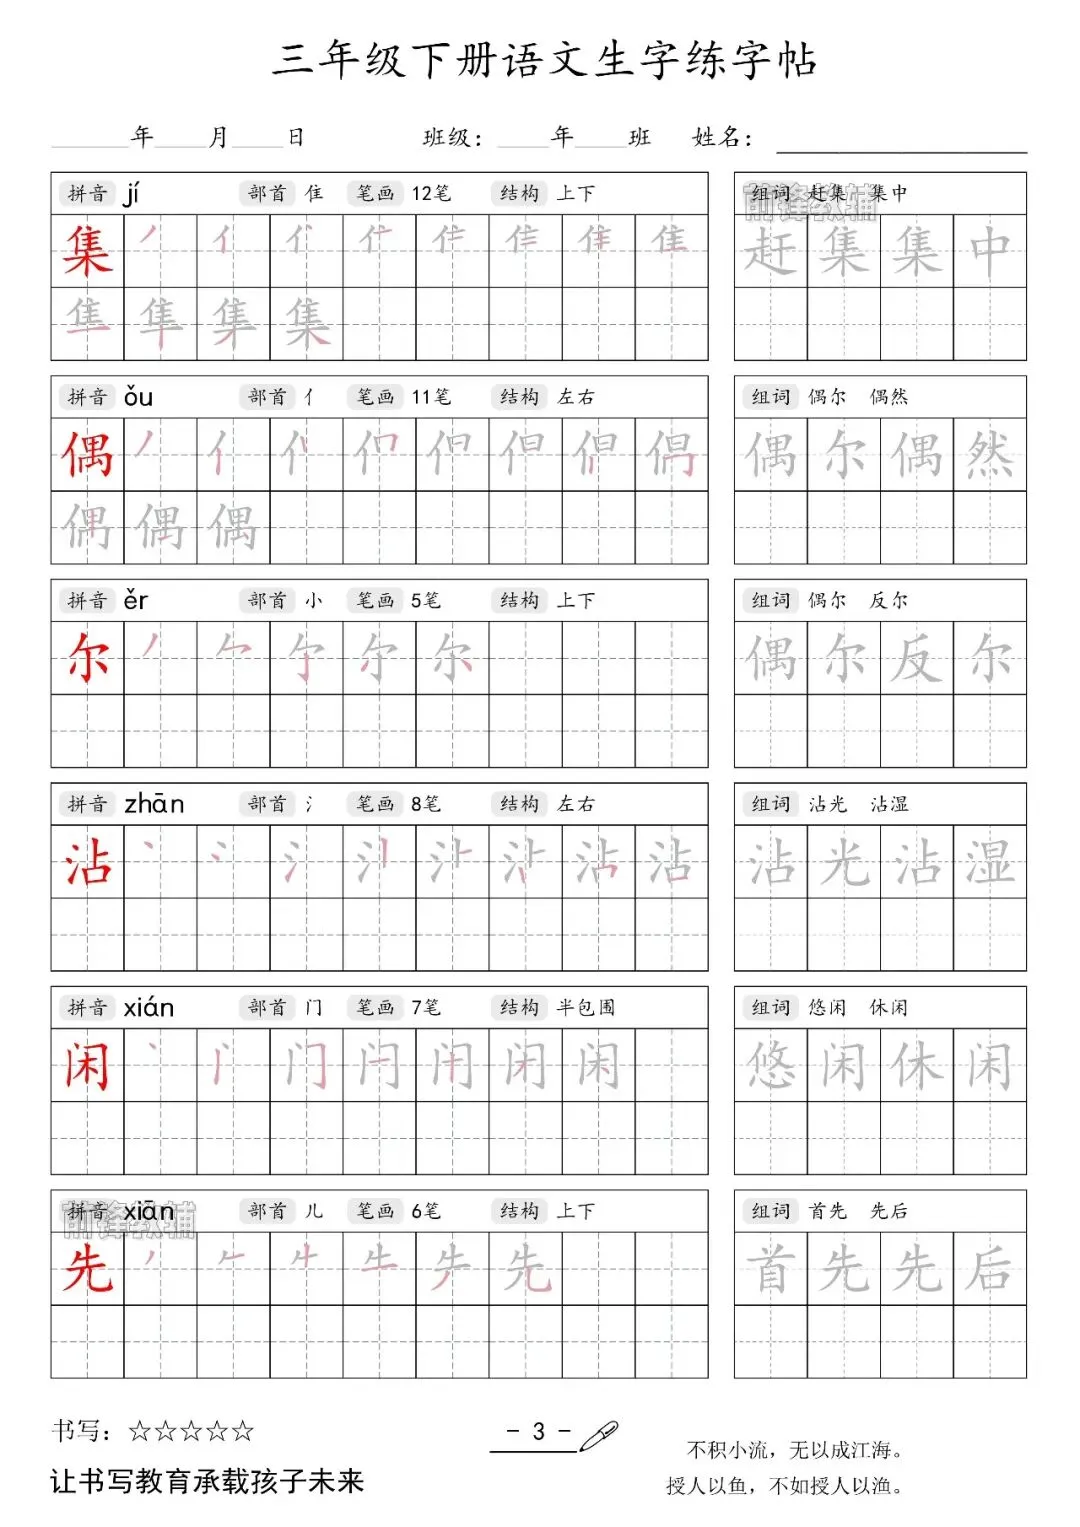 三年级下册语文生字练字帖
年 月 日 班级： 年 班 姓名：
拼音 jí 部首 隹 笔画 12笔 结构 上下
集
组词 赶集 集中
赶集集中
前锋教辅
拼音 ǒu 部首 亻 笔画 11笔 结构 左右
偶
偶偶偶
组词 偶尔 偶然
偶尔偶然
拼音 ěr 部首 小 笔画 5笔 结构 上下
尔
组词 偶尔 反尔
偶尔反尔
拼音 zhān 部首 氵 笔画 8笔 结构 左右
沾
组词 沾光 沾湿
沾光沾湿
拼音 xián 部首 门 笔画 7笔 结构 半包围
闲
组词 悠闲 休闲
悠闲休闲
拼音 xiān 部首 儿 笔画 6笔 结构 上下
前锋教辅
先
组词 首先 先后
首先先后
书写：☆☆☆☆☆
让书写教育承载孩子未来
- 3 -
不积小流，无以成江海。
授人以鱼，不如授人以渔。